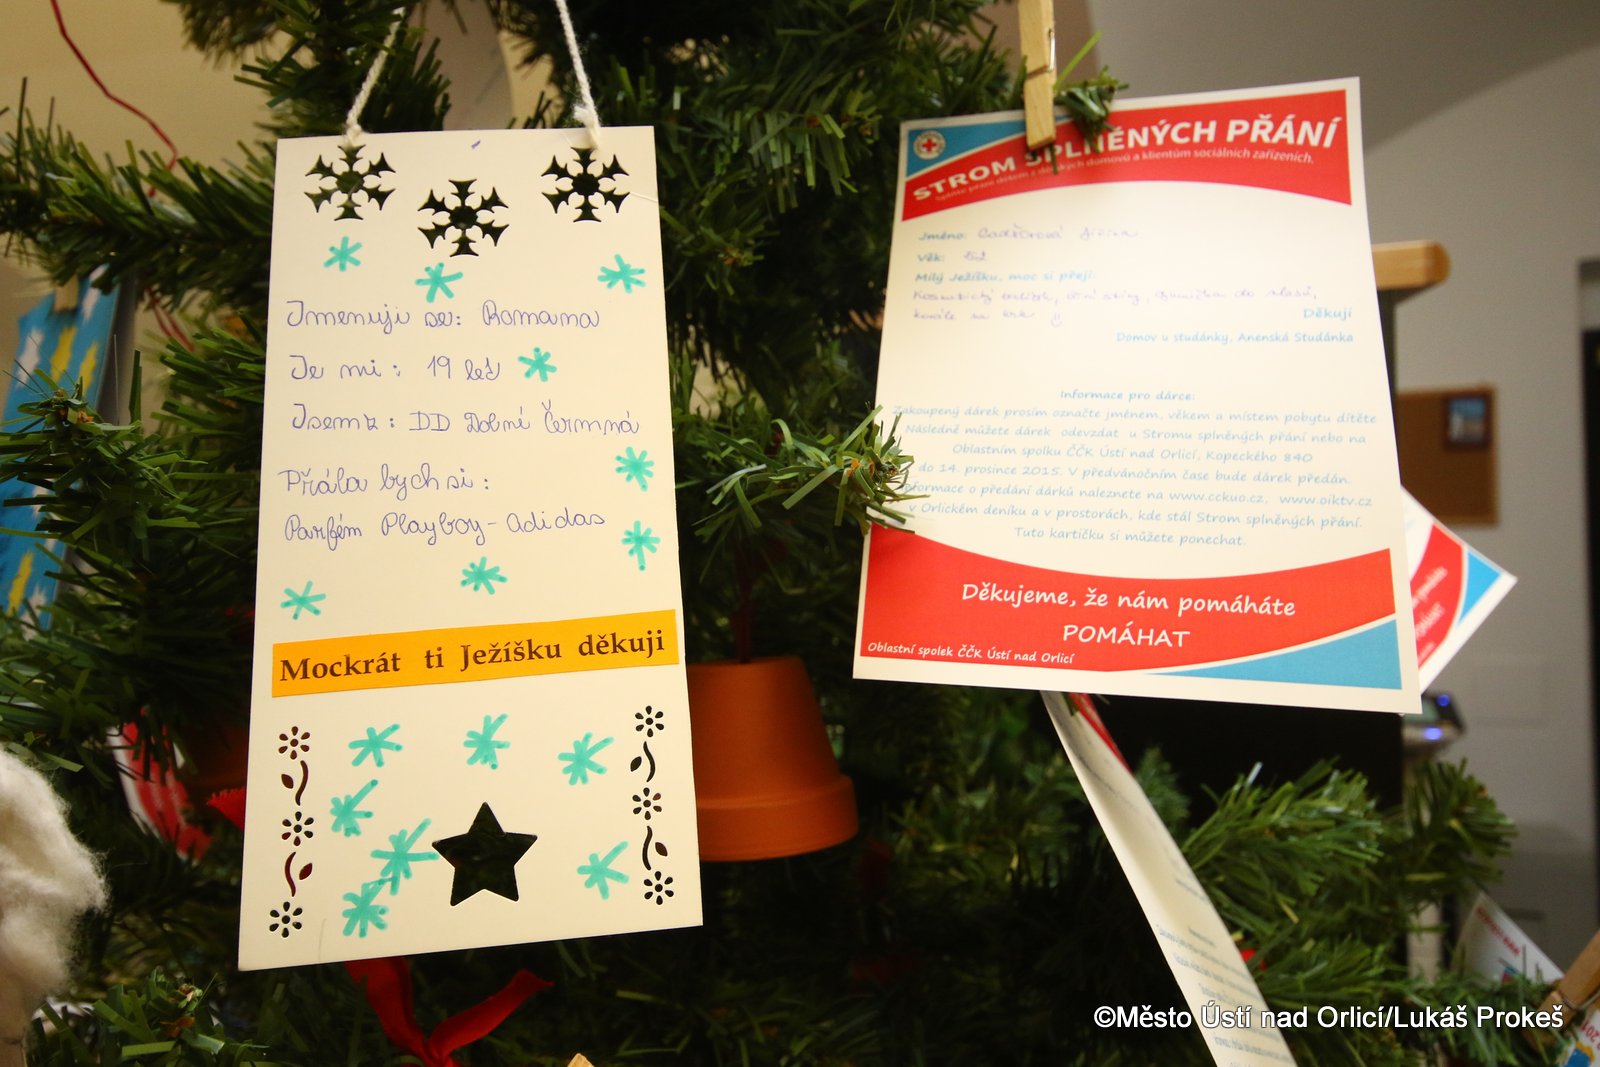 Jmenuji se: Romana
Je mi: 19 let
Jsem z: DD Dolní Čermná
Přála bych si:
Parfém Playboy - adidas
Mockrát ti Ježíšku děkuji
STROM SPLNĚNÝCH PŘÁNÍ
Splňte přání dětem z dětských domovů a klientům sociálních zařízeních.
Jméno:
Věk:
Milý Ježíšku, moc si přeji:
Kosmetický balíček, oční stíny, gumička do vlasů,
korále na krk
Děkuji
Domov u studánky, Anenská Studánka
Informace pro dárce:
Zakoupený dárek prosím označte jménem, věkem a místem pobytu dítěte
Následně můžete dárek odevzdat u Stromu splněných přání nebo na
Oblastním spolku ČČK Ústí nad Orlicí, Kopeckého 840
do 14. prosince 2015. V předvánočním čase bude dárek předán.
Informace o předání dárků naleznete na www.cckuo.cz, www.oiktv.cz
v Orlickém deníku a v prostorách, kde stál Strom splněných přání.
Tuto kartičku si můžete ponechat.
Děkujeme, že nám pomáháte
POMÁHAT
Oblastní spolek ČČK Ústí nad Orlicí
©Město Ústí nad Orlicí/Lukáš Prokeš